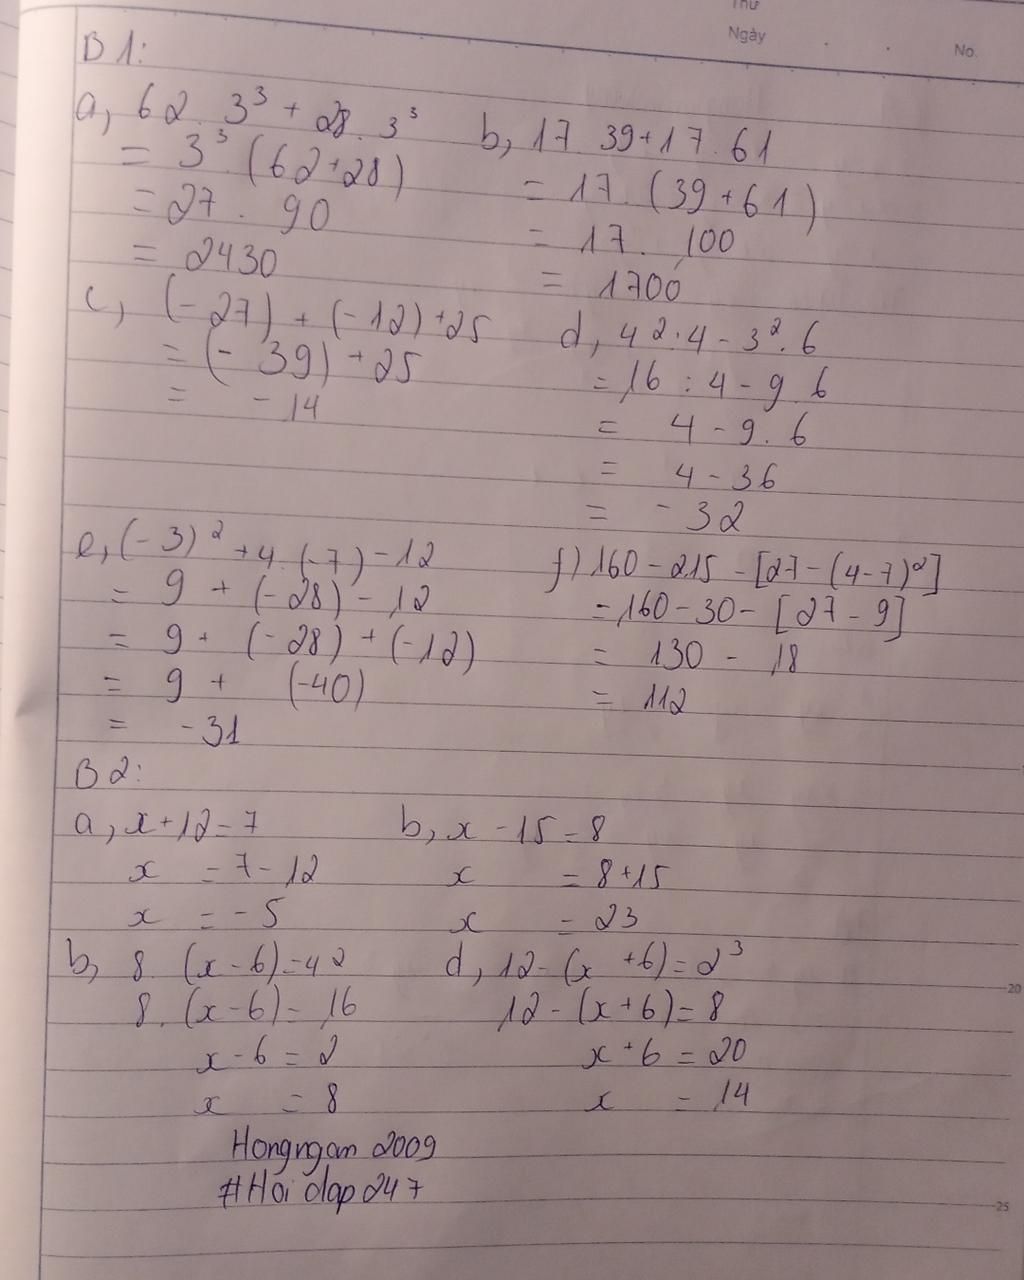 Thứ
Ngày . . No.
B1:
a, 62. 3³ + 28. 3³
= 3³. (62+28)
= 27. 90
= 2430
b, 17 39+17.61
= 17. (39+61)
= 17. 100
= 1700
c, (-27) + (-12) +25
= (-39) + 25
= -14
d, 42.4 - 3². 6
= 16 : 4 - 9. 6
= 4 - 9. 6
= 4 - 36
= -32
e, (-3)² + 4. (-7) - 12
= 9 + (-28) - 12
= 9 + (-28) + (-12)
= 9 + (-40)
= -31
f) 160 - 215 - [27 - (4-7)²]
= 160 - 30 - [27 - 9]
= 130 - 18
= 112
B2:
a, x+12=7
x = 7-12
x = -5
b, x - 15 = 8
x = 8+15
x = 23
b, 8. (x-6)=42
8. (x-6)= 16
x-6 = 2
x = 8
d, 12-(x +6)=2³
12-(x+6)= 8
x+6 = 20
x = 14
Hongngan 2009
#Hoi dap 247
20
25